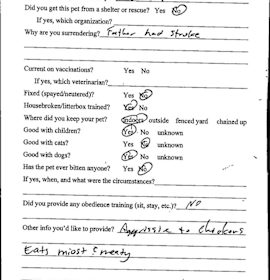 Did you get this pet from a shelter or rescue? Yes No
If yes, which organization?
Why are you surrendering? Father had stroke
Current on vaccinations? Yes No
If yes, which veterinarian?
Fixed (spayed/neutered)? Yes No
Housebroken/litterbox trained? Yes No
Where did you keep your pet? indoors outside fenced yard chained up
Good with children? Yes No unknown
Good with cats? Yes No unknown
Good with dogs? Yes No unknown
Has the pet ever bitten anyone? Yes No
If yes, when, and what were the circumstances?
Did you provide any obedience training (sit, stay, etc.)? NO
Other info you'd like to provide? Aggrissie to chickens
Eats miost & meaty